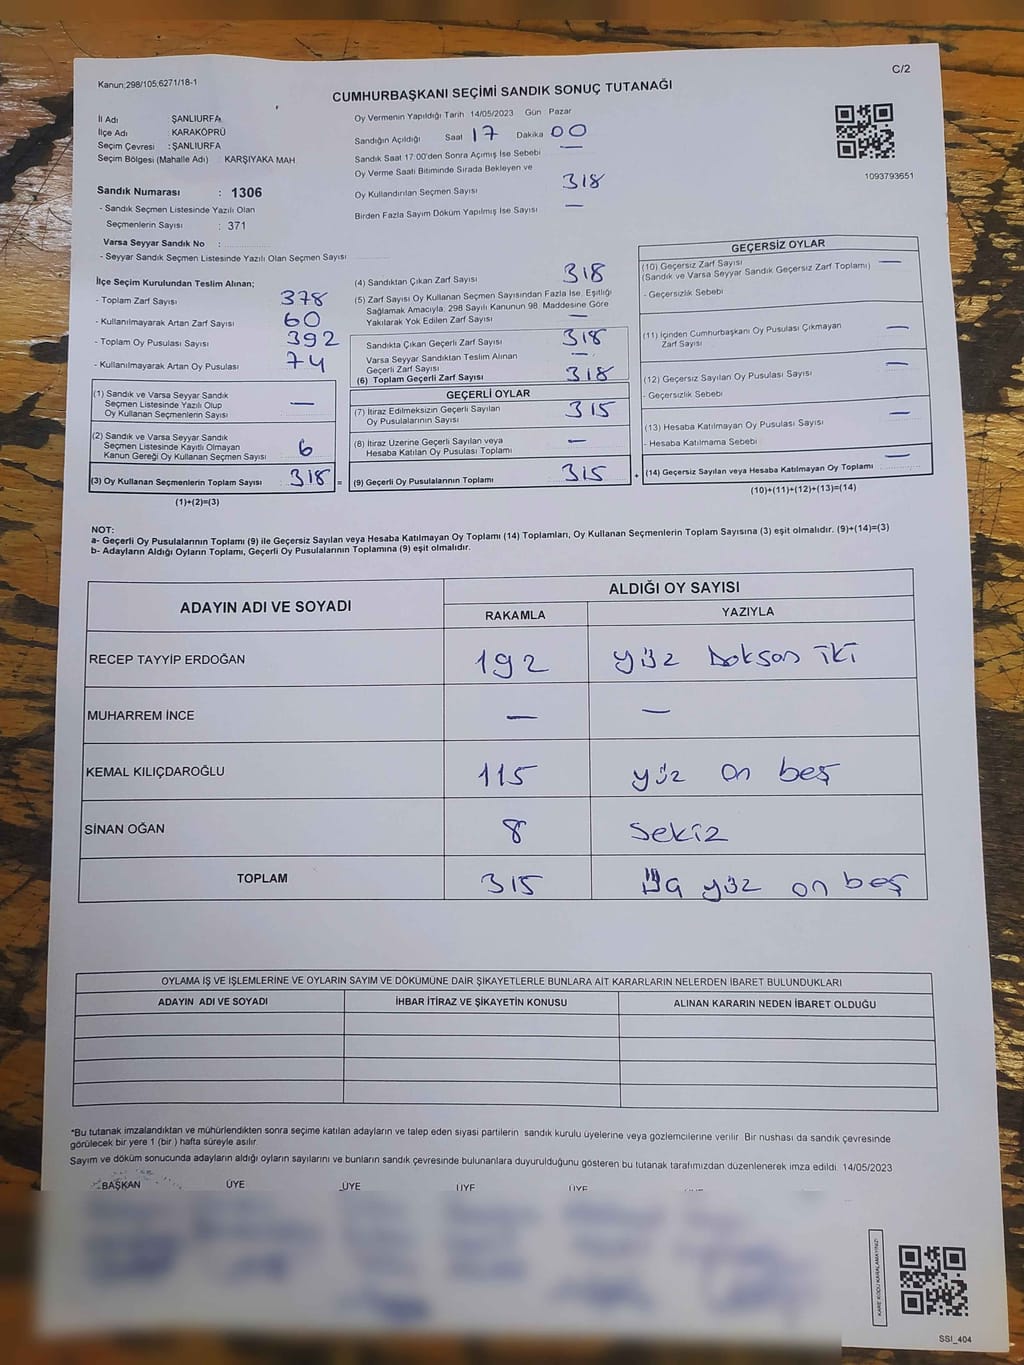 Kanun;298/105;6271/18-1
C/2
CUMHURBAŞKANI SEÇİMİ SANDIK SONUÇ TUTANAĞI
İl Adı : ŞANLIURFA
İlçe Adı : KARAKÖPRÜ
Seçim Çevresi : ŞANLIURFA
Seçim Bölgesi (Mahalle Adı) : KARŞIYAKA MAH.
Sandık Numarası : 1306
- Sandık Seçmen Listesinde Yazılı Olan
Seçmenlerin Sayısı : 371
Varsa Seyyar Sandık No :
- Seyyar Sandık Seçmen Listesinde Yazılı Olan Seçmen Sayısı
Oy Vermenin Yapıldığı Tarih 14/05/2023 Gün Pazar
Sandığın Açıldığı Saat 17 Dakika 00
Sandık Saat 17:00'den Sonra Açımış İse Sebebi —
Oy Verme Saati Bitiminde Sırada Bekleyen ve
Oy Kullandırılan Seçmen Sayısı 318
Birden Fazla Sayım Döküm Yapılmış İse Sayısı —
1093793651
İlçe Seçim Kurulundan Teslim Alınan;
- Toplam Zarf Sayısı 378
- Kullanılmayarak Artan Zarf Sayısı 60
- Toplam Oy Pusulası Sayısı 392
- Kullanılmayarak Artan Oy Pusulası 74
(1) Sandık ve Varsa Seyyar Sandık
Seçmen Listesinde Yazılı Olup
Oy Kullanan Seçmenlerin Sayısı —
(2) Sandık ve Varsa Seyyar Sandık
Seçmen Listesinde Kayıtlı Olmayan
Kanun Gereği Oy Kullanan Seçmen Sayısı 6
(3) Oy Kullanan Seçmenlerin Toplam Sayısı 318 =
(1)+(2)=(3)
(4) Sandıktan Çıkan Zarf Sayısı 318
(5) Zarf Sayısı Oy Kullanan Seçmen Sayısından Fazla İse, Eşitliği
Sağlamak Amacıyla, 298 Sayılı Kanunun 98. Maddesine Göre
Yakılarak Yok Edilen Zarf Sayısı —
Sandıkta Çıkan Geçerli Zarf Sayısı 318
Varsa Seyyar Sandıktan Teslim Alınan
Geçerli Zarf Sayısı —
(6) Toplam Geçerli Zarf Sayısı 318
GEÇERLİ OYLAR
(7) İtiraz Edilmeksizin Geçerli Sayılan
Oy Pusulalarının Sayısı 315
(8) İtiraz Üzerine Geçerli Sayılan veya
Hesaba Katılan Oy Pusulası Toplamı —
(9) Geçerli Oy Pusulalarının Toplamı 315 +
GEÇERSİZ OYLAR
(10) Geçersiz Zarf Sayısı —
(Sandık ve Varsa Seyyar Sandık Geçersiz Zarf Toplamı)
- Geçersizlik Sebebi
(11) İçinden Cumhurbaşkanı Oy Pusulası Çıkmayan
Zarf Sayısı —
(12) Geçersiz Sayılan Oy Pusulası Sayısı —
- Geçersizlik Sebebi
(13) Hesaba Katılmayan Oy Pusulası Sayısı —
- Hesaba Katılmama Sebebi
(14) Geçersiz Sayılan veya Hesaba Katılmayan Oy Toplamı —
(10)+(11)+(12)+(13)=(14)
NOT:
a- Geçerli Oy Pusulalarının Toplamı (9) ile Geçersiz Sayılan veya Hesaba Katılmayan Oy Toplamı (14) Toplamları, Oy Kullanan Seçmenlerin Toplam Sayısına (3) eşit olmalıdır. (9)+(14)=(3)
b- Adayların Aldığı Oyların Toplamı, Geçerli Oy Pusulalarının Toplamına (9) eşit olmalıdır.
ADAYIN ADI VE SOYADI
ALDIĞI OY SAYISI
RAKAMLA YAZIYLA
RECEP TAYYİP ERDOĞAN 192 yüz Doksan iki
MUHARREM İNCE — —
KEMAL KILIÇDAROĞLU 115 yüz on beş
SİNAN OĞAN 8 Sekiz
TOPLAM 315 yüz on beş
OYLAMA İŞ VE İŞLEMLERİNE VE OYLARIN SAYIM VE DÖKÜMÜNE DAİR ŞİKAYETLERLE BUNLARA AİT KARARLARIN NELERDEN İBARET BULUNDUKLARI
ADAYIN ADI VE SOYADI İHBAR İTİRAZ VE ŞİKAYETİN KONUSU ALINAN KARARIN NEDEN İBARET OLDUĞU
*Bu tutanak imzalandıktan ve mühürlendikten sonra seçime katılan adayların ve talep eden siyasi partilerin sandık kurulu üyelerine veya gözlemcilerine verilir. Bir nüshası da sandık çevresinde
görülecek bir yere 1 (bir ) hafta süreyle asılır.
Sayım ve döküm sonucunda adayların aldığı oyların sayılarını ve bunların sandık çevresinde bulunanlara duyurulduğunu gösteren bu tutanak tarafımızdan düzenlenerek imza edildi. 14/05/2023
BAŞKAN ÜYE ÜYE ÜYE ÜYE
KARE KODU KARALAMAYINIZ!
SSI_404